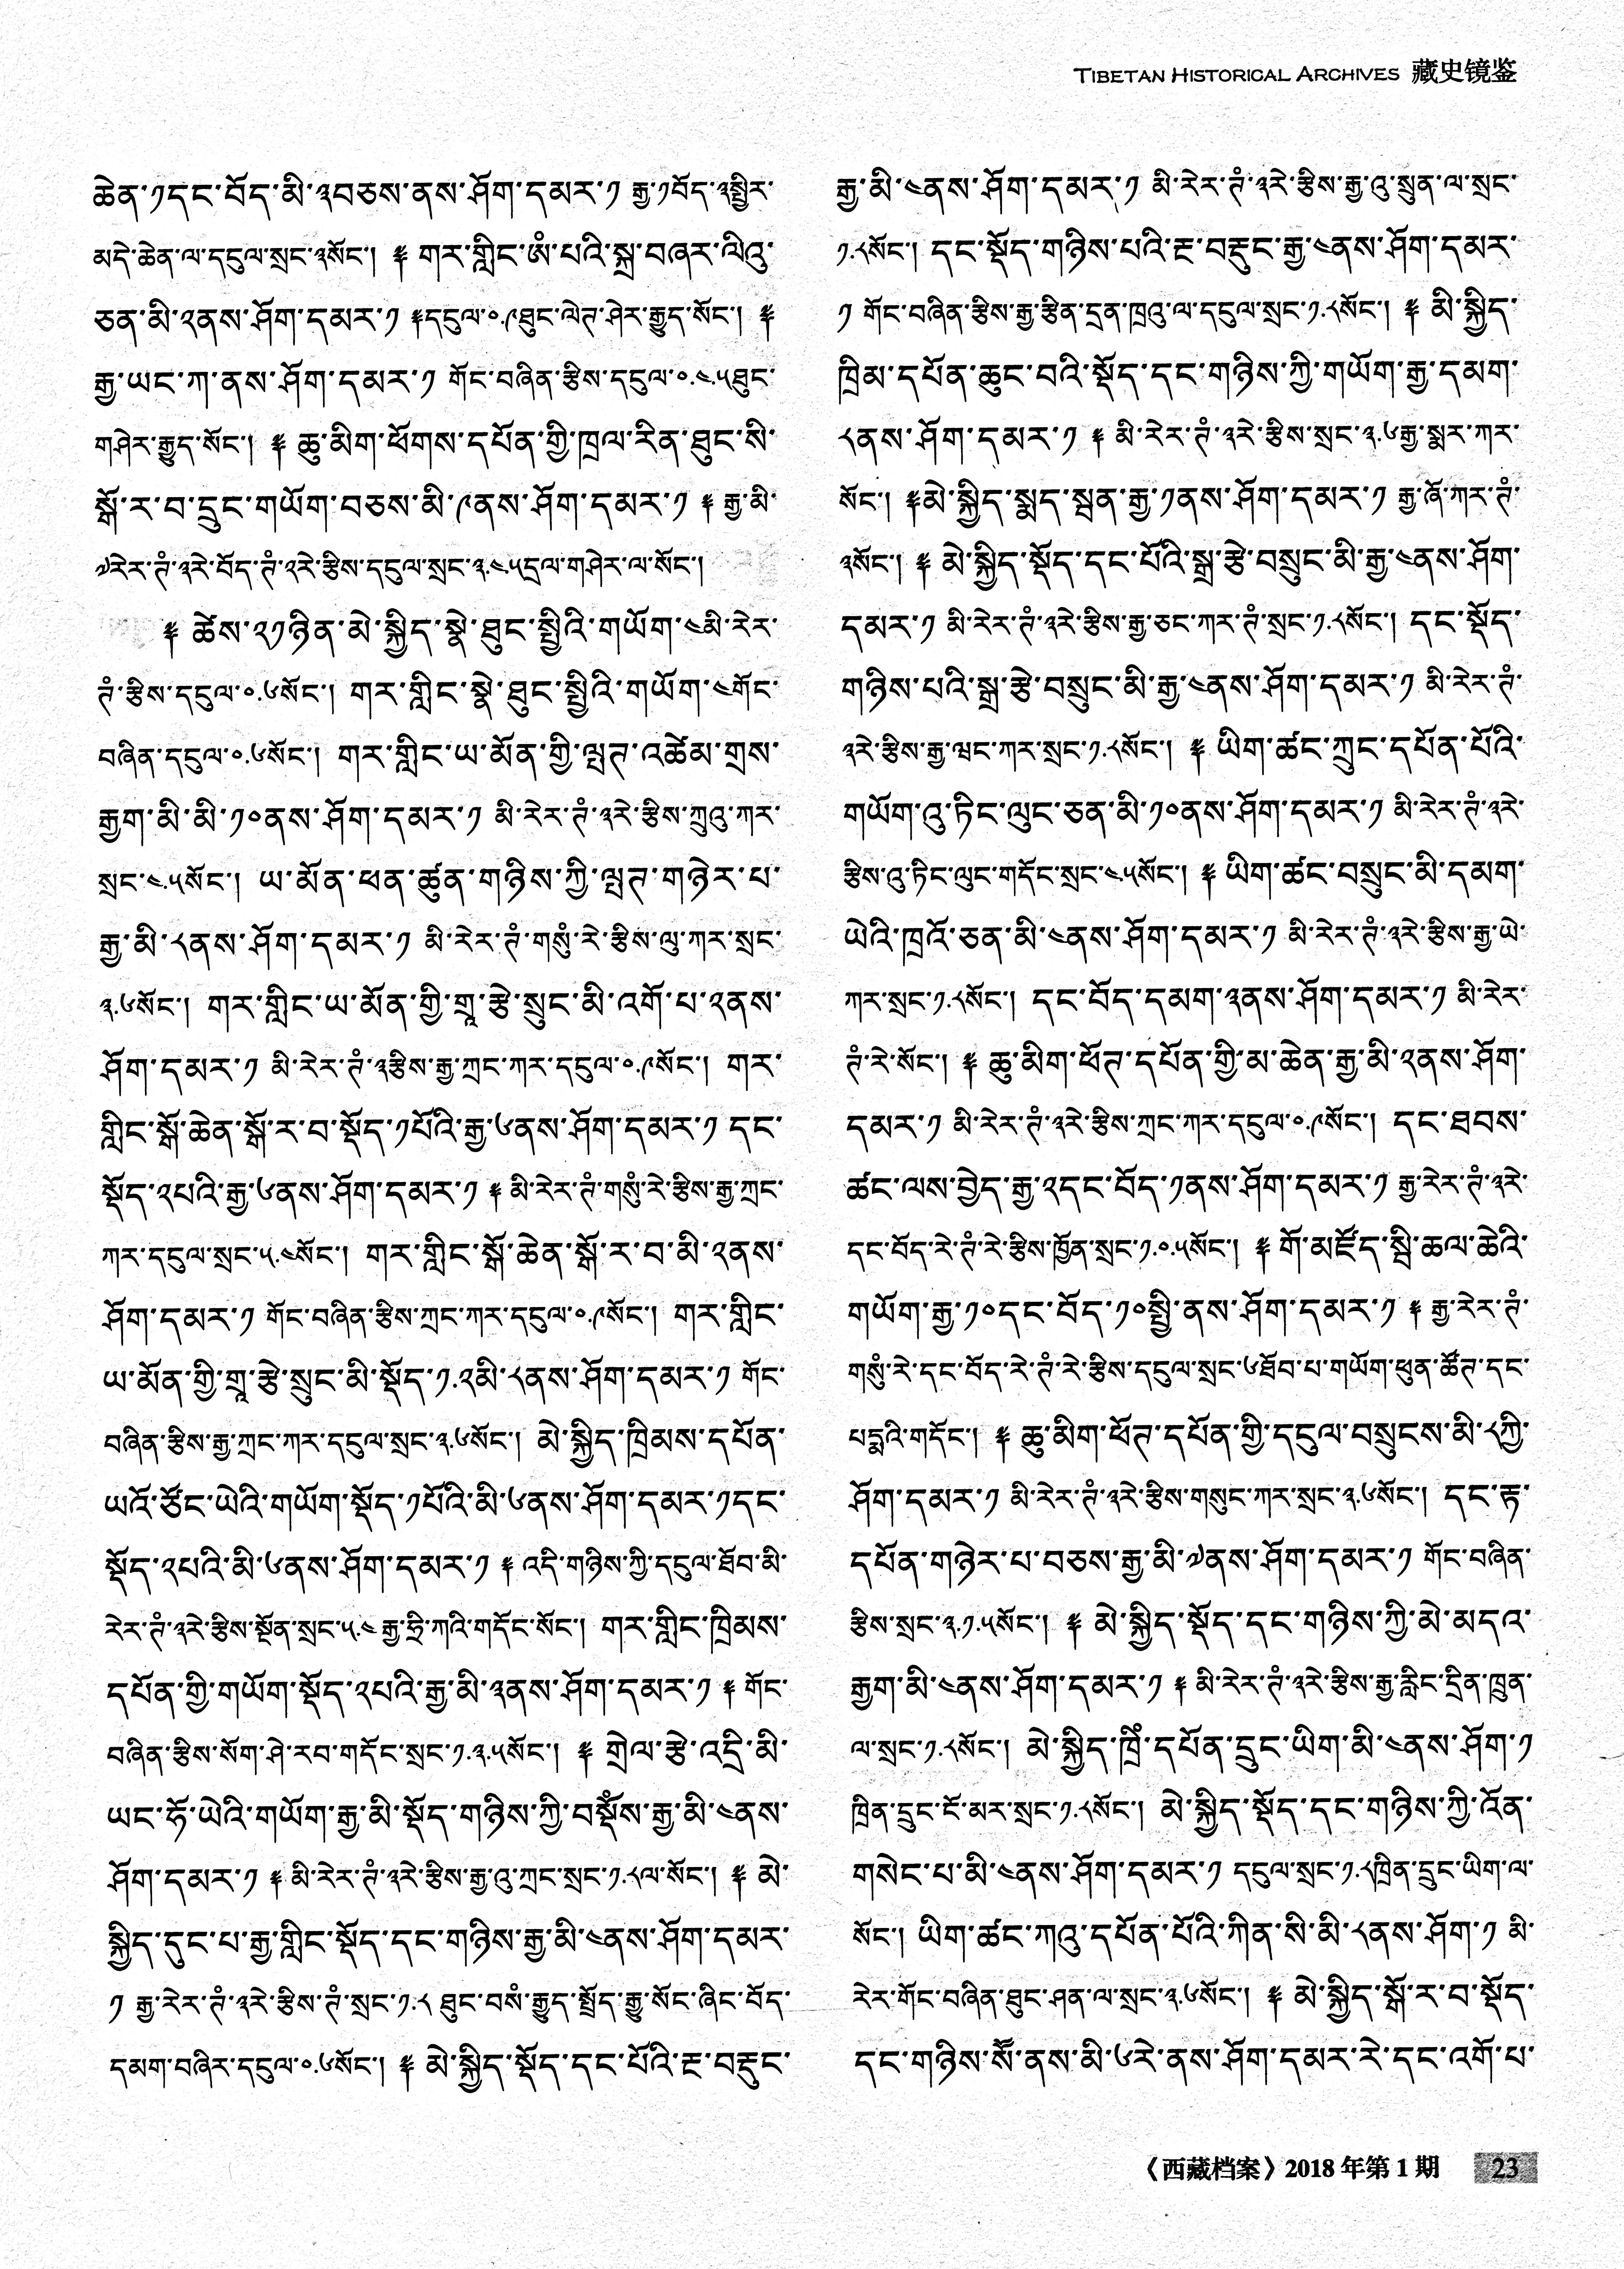 TIBETAN HISTORICAL ARCHIVES 藏史镜鉴
ཆེན་༡དང་བོད་མི་༣བཅས་ནས་ཤོག་དམར་༡ རྒྱ་༡བོད་༣སྤྱིར་
མདེ་ཆེན་ལ་དངུལ་སྲང་༣སོང་། ༈ གར་གླིང་ཨཾ་པའི་སྐྲ་བཞར་ལིའུ་
ཅན་མི་༢ནས་ཤོག་དམར་༡ ༈དངུལ་༠.༩ཐུང་ལེཊ་ཤེར་རྒྱུད་སོང་། ༈
རྒྱ་ཡང་ཀ་ནས་ཤོག་དམར་༡ གོང་བཞིན་རྩིས་དངུལ་༠.༤.༥ཐུང་
གཤེར་རྒྱུད་སོང་། ༈ ཆུ་མིག་ཕོགས་དཔོན་གྱི་ཁྲལ་རིན་ཐུང་སི་
སྒོ་ར་བ་དྲུང་གཡོག་བཅས་མི་༩ནས་ཤོག་དམར་༡ ༈ རྒྱ་མི་
༧རེར་ཊཾ་༣རེ་བོད་ཊཾ་༢རེ་རྩིས་དངུལ་སྲང་༣.༤.༥དྲལ་གཤེར་ལ་སོང་།
༈ ཚེས་༢༡ཉིན་མེ་སྐྱིད་སྣེ་ཐུང་སྤྱིའི་གཡོག་༤མི་རེར་
ཊཾ་རྩིས་དངུལ་༠.༦སོང་། གར་གླིང་སྣེ་ཐུང་སྤྱིའི་གཡོག་༤གོང་
བཞིན་དངུལ་༠.༦སོང་། གར་གླིང་ཡ་མོན་གྱི་ལྤཊ་འཚེམ་གྲས་
རྒྱག་མི་མི་༡༠ནས་ཤོག་དམར་༡ མི་རེར་ཊཾ་༣རེ་རྩིས་ཀྲུའུ་ཀར་
སྲང་༤.༥སོང་། ཡ་མོན་ཕན་ཚུན་གཉིས་ཀྱི་ལྤཊ་གཉེར་པ་
རྒྱ་མི་༨ནས་ཤོག་དམར་༡ མི་རེར་ཊཾ་གསུཾ་རེ་རྩིས་ལུ་ཀར་སྲང་
༣.༦སོང་། གར་གླིང་ཡ་མོན་གྱི་གྲྭ་རྩེ་སྲུང་མི་འགོ་པ་༢ནས་
ཤོག་དམར་༡ མི་རེར་ཊཾ་༣རྩིས་རྒྱ་ཀྲང་ཀར་དངུལ་༠.༩སོང་། གར་
གླིང་སྒོ་ཆེན་སྒོ་ར་བ་སྡོད་༡པོའི་རྒྱ་༦ནས་ཤོག་དམར་༡ དང་
སྡོད་༢པའི་རྒྱ་༦ནས་ཤོག་དམར་༡ ༈ མི་རེར་ཊཾ་གསུཾ་རེ་རྩིས་རྒྱ་ཀྲང་
ཀར་དངུལ་སྲང་༥.༤སོང་། གར་གླིང་སྒོ་ཆེན་སྒོ་ར་བ་མི་༢ནས་
ཤོག་དམར་༡ གོང་བཞིན་རྩིས་ཀྲང་ཀར་དངུལ་༠.༩སོང་། གར་གླིང་
ཡ་མོན་གྱི་གྲྭ་རྩེ་སྲུང་མི་སྡོད་༡.༢མི་༨ནས་ཤོག་དམར་༡ གོང་
བཞིན་རྩིས་རྒྱ་ཀྲང་ཀར་དངུལ་སྲང་༣.༦སོང་། མེ་སྐྱིད་ཁྲིམས་དཔོན་
ཡའོ་ཙོང་ཡེའི་གཡོག་སྡོད་༡པོའི་མི་༦ནས་ཤོག་དམར་༡དང་
སྡོད་༢པའི་མི་༦ནས་ཤོག་དམར་༡ ༈ འདི་གཉིས་ཀྱི་དངུལ་ཐོབ་མི་
རེར་ཊཾ་༣རེ་རྩིས་སྡོན་སྲང་༥.༤ རྒྱ་ཏྲི་ཀའི་གདོང་སོང་། གར་གླིང་ཁྲིམས་
དཔོན་གྱི་གཡོག་སྡོད་༢པའི་རྒྱ་མི་༣ནས་ཤོག་དམར་༡ ༈ གོང་
བཞིན་རྩིས་སོག་ཤེ་རབ་གདོང་སྲང་༡.༣.༥སོང་། ༈ གྲེལ་རྩེ་འདྲི་མི་
ཡང་ཧོ་ཡེའི་གཡོག་རྒྱ་མི་སྡོད་གཉིས་ཀྱི་བསྡོཾས་རྒྱ་མི་༤ནས་
ཤོག་དམར་༡ ༈ མི་རེར་ཊཾ་༣རེ་རྩིས་རྒྱ་འུ་ཀྲང་སྲང་༡.༨ལ་སོང་། ༈ མེ་
སྐྱིད་དུང་པ་རྒྱ་གླིང་སྡོད་དང་གཉིས་རྒྱ་མི་༤ནས་ཤོག་དམར་
༡ རྒྱ་རེར་ཊཾ་༣རེ་རྩིས་ཊཾ་སྲང་༡.༨ ཐུང་བསཾ་རྒྱུད་སྤྲོད་རྒྱུ་སོང་ཞིང་བོད་
དམག་བཞིར་དངུལ་༠.༦སོང་། ༈ མེ་སྐྱིད་སྡོད་དང་པོའི་རྔ་བརྡུང་
རྒྱ་མི་༤ནས་ཤོག་དམར་༡ མི་རེར་ཊཾ་༣རེ་རྩིས་རྒྱ་འུ་སྲུན་ལ་སྲང་
༡.༨སོང་། དང་སྡོད་གཉིས་པའི་རྔ་བརྡུང་རྒྱ་༤ནས་ཤོག་དམར་
༡ གོང་བཞིན་རྩིས་རྒྱ་རྩིན་དྲན་ཁྲའུ་ལ་དངུལ་སྲང་༡.༨སོང་། ༈ མི་སྐྱིད་
ཁྲིམ་དཔོན་ཆུང་བའི་སྡོད་དང་གཉིས་ཀྱི་གཡོག་རྒྱ་དམག་
༨ནས་ཤོག་དམར་༡ ༈ མི་རེར་ཊཾ་༣རེ་རྩིས་སྲང་༣.༦རྒྱ་སྨར་ཀར་
སོང་། ༈མེ་སྐྱིད་སྨད་སྨན་རྒྱ་༡ནས་ཤོག་དམར་༡ རྒྱ་ཞོ་ཀར་ཊཾ་
༣སོང་། ༈ མེ་སྐྱིད་སྡོད་དང་པོའི་སྒྲ་རྩེ་བསྲུང་མི་རྒྱ་༤ནས་ཤོག་
དམར་༡ མི་རེར་ཊཾ་༣རེ་རྩིས་རྒྱ་ཅང་ཀར་ཊཾ་སྲང་༡.༨སོང་། དང་སྡོད་
གཉིས་པའི་སྒྲ་རྩེ་བསྲུང་མི་རྒྱ་༤ནས་ཤོག་དམར་༡ མི་རེར་ཊཾ་
༣རེ་རྩིས་རྒྱ་ཝང་ཀར་སྲང་༡.༨སོང་། ༈ ཡིག་ཚང་ཀྲུང་དཔོན་པོའི་
གཡོག་འུ་ཏིང་ལུང་ཅན་མི་༡༠ནས་ཤོག་དམར་༡ མི་རེར་ཊཾ་༣རེ་
རྩིས་འུ་ཏིང་ལུང་གདོང་སྲང་༤.༥སོང་། ༈ ཡིག་ཚང་བསྲུང་མི་དམག་
ཡེའི་ཁྲའོ་ཅན་མི་༤ནས་ཤོག་དམར་༡ མི་རེར་ཊཾ་༣རེ་རྩིས་རྒྱ་ཡེ་
ཀར་སྲང་༡.༨སོང་། དང་བོད་དམག་༣ནས་ཤོག་དམར་༡ མི་རེར་
ཊཾ་རེ་སོང་། ༈ ཆུ་མིག་ཕོཊ་དཔོན་གྱི་མ་ཆེན་རྒྱ་མི་༢ནས་ཤོག་
དམར་༡ མི་རེར་ཊཾ་༣རེ་རྩིས་ཀྲང་ཀར་དངུལ་༠.༩སོང་། དང་ཐབས་
ཚང་ལས་བྱེད་རྒྱ་༢དང་བོད་༡ནས་ཤོག་དམར་༡ རྒྱ་རེར་ཊཾ་༣རེ་
དང་བོད་རེ་ཊཾ་རེ་རྩིས་ཁྱོན་སྲང་༡.༠.༥སོང་། ༈ གོ་མཛོད་སྤི་ཆལ་ཆེའི་
གཡོག་རྒྱ་༡༠དང་བོད་༡༠སྤྱི་ནས་ཤོག་དམར་༡ ༈ རྒྱ་རེར་ཊཾ་
གསུཾ་རེ་དང་བོད་རེ་ཊཾ་རེ་རྩིས་དངུལ་སྲང་༦ཐོབ་པ་གཡོག་ཕུན་ཚོཊ་དང་
པདྨའི་གདོང་། ༈ ཆུ་མིག་ཕོཊ་དཔོན་གྱི་དངུལ་བསྲུངས་མི་༨ཀྱི་
ཤོག་དམར་༡ མི་རེར་ཊཾ་༣རེ་རྩིས་གསུང་ཀར་སྲང་༣.༦སོང་། དང་རྟ་
དཔོན་གཉེར་པ་བཅས་རྒྱ་མི་༧ནས་ཤོག་དམར་༡ གོང་བཞིན་
རྩིས་སྲང་༣.༡.༥སོང་། ༈ མེ་སྐྱིད་སྡོད་དང་གཉིས་ཀྱི་མེ་མདའ་
རྒྱག་མི་༤ནས་ཤོག་དམར་༡ ༈ མི་རེར་ཊཾ་༣རེ་རྩིས་རྒྱ་རླིང་དྲིན་ཁྲུན་
ལ་སྲང་༡.༨སོང་། མེ་སྐྱིད་ཁྲིཾ་དཔོན་དྲུང་ཡིག་མི་༤ནས་ཤོག་༡
ཁྲིན་དྲུང་ངོ་མར་སྲང་༡.༨སོང་། མེ་སྐྱིད་སྡོད་དང་གཉིས་ཀྱི་འོན་
གསེང་པ་མི་༤ནས་ཤོག་དམར་༡ དངུལ་སྲང་༡.༨ཁྲིན་དྲུང་ཡིག་ལ་
སོང་། ཡིག་ཚང་ཀའུ་དཔོན་པོའི་ཀིན་སི་མི་༨ནས་ཤོག་༡ མི་
རེར་གོང་བཞིན་ཐུང་ཤན་ལ་སྲང་༣.༦སོང་། ༈ མེ་སྐྱིད་སྒོ་ར་བ་སྡོད་
དང་གཉིས་སོཾ་ནས་མི་༦རེ་ནས་ཤོག་དམར་རེ་དང་འགོ་པ་
《西藏档案》2018年第1期 23